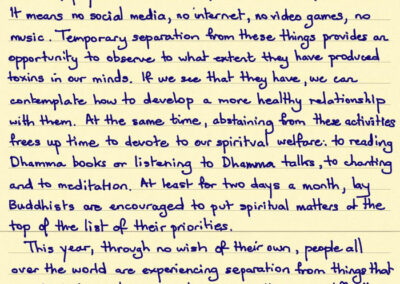 It means no social media, no internet, no video games, no
music. Temporary separation from these things provides an
opportunity to observe to what extent they have produced
toxins in our minds. If we see that they have, we can
contemplate how to develop a more healthy relationship
with them. At the same time, abstaining from these activities
frees up time to devote to our spiritual welfare: to reading
Dhamma books or listening to Dhamma talks, to chanting
and to meditation. At least for two days a month, lay
Buddhists are encouraged to put spiritual matters at the
top of the list of their priorities.
This year, through no wish of their own, people all
over the world are experiencing separation from things that